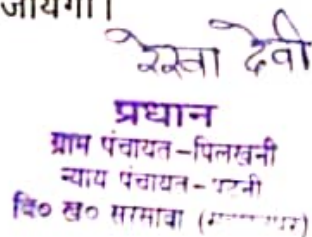 जायेगा।
रेखा देवी
प्रधान
ग्राम पंचायत-पिलखनी
न्याय पंचायत-
वि० ख० सरसावा